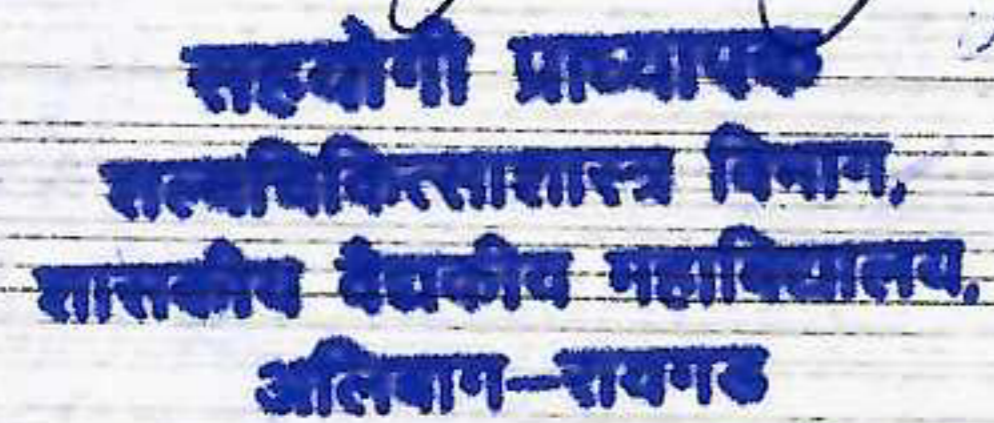 सहयोगी प्राध्यापक
शल्यचिकित्साशास्त्र विभाग,
शासकीय वैद्यकीय महाविद्यालय,
अलिबाग-रायगड